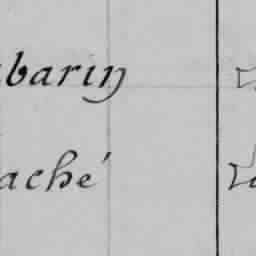 barin
aché